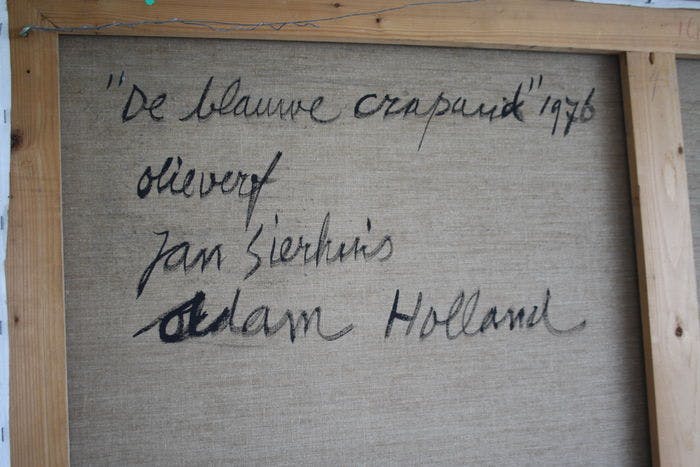 "De blauwe crapaud" 1976
olieverf
Jan Sierhuis
Adam Holland